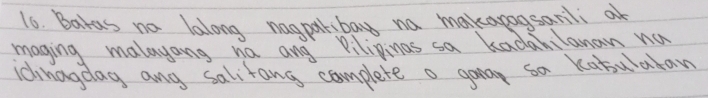 16. Batas na lalong nagpatibay na makapagsarili at
maging malayang na ang Pilipinas sa kadahilanan na
idinagdag ang salitang complete o ganap sa katsulatan